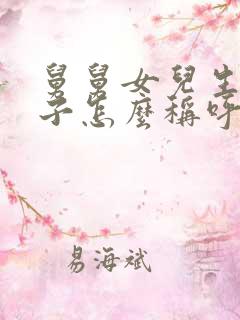 舅舅女兒生
子怎麼稱呼
易海斌